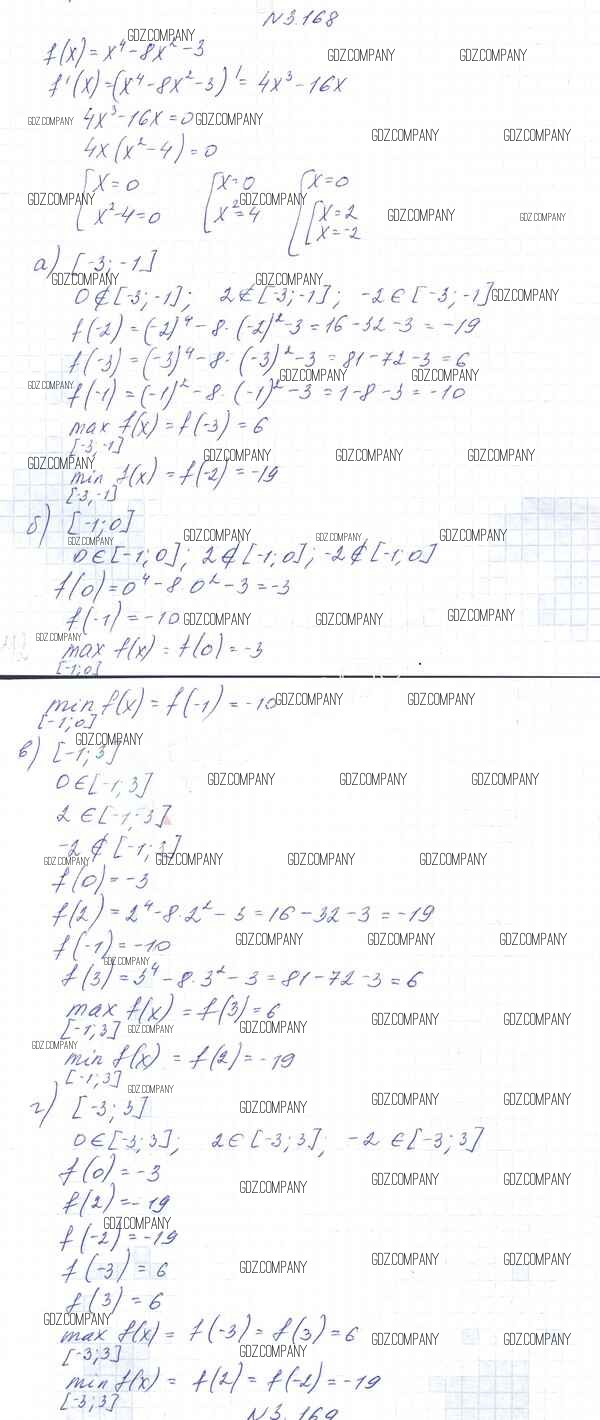 N3.168
f(x) = x⁴ - 8x² - 3
f'(x) = (x⁴ - 8x² - 3)' = 4x³ - 16x
4x³ - 16x = 0
4x(x² - 4) = 0
{ x = 0 { x = 0 { x = 0
{ x² - 4 = 0 { x² = 4 { [ x = 2
[ x = -2
а) [-3; -1]
0 ∉ [-3; -1]; 2 ∉ [-3; -1]; -2 ∈ [-3; -1]
f(-2) = (-2)⁴ - 8·(-2)² - 3 = 16 - 32 - 3 = -19
f(-3) = (-3)⁴ - 8·(-3)² - 3 = 81 - 72 - 3 = 6
f(-1) = (-1)² - 8·(-1)² - 3 = 1 - 8 - 3 = -10
max f(x) = f(-3) = 6
[-3,-1]
min f(x) = f(-2) = -19
[-3,-1]
б) [-1; 0]
0 ∈ [-1; 0]; 2 ∉ [-1; 0]; -2 ∉ [-1; 0]
f(0) = 0⁴ - 8·0² - 3 = -3
f(-1) = -10
max f(x) = f(0) = -3
[-1;0]
min f(x) = f(-1) = -10
[-1;0]
в) [-1; 3]
0 ∈ [-1; 3]
2 ∈ [-1; 3]
-2 ∉ [-1; 3]
f(0) = -3
f(2) = 2⁴ - 8·2² - 3 = 16 - 32 - 3 = -19
f(-1) = -10
f(3) = 3⁴ - 8·3² - 3 = 81 - 72 - 3 = 6
max f(x) = f(3) = 6
[-1;3]
min f(x) = f(2) = -19
[-1;3]
г) [-3; 3]
0 ∈ [-3; 3]; 2 ∈ [-3; 3]; -2 ∈ [-3; 3]
f(0) = -3
f(2) = -19
f(-2) = -19
f(-3) = 6
f(3) = 6
max f(x) = f(-3) = f(3) = 6
[-3;3]
min f(x) = f(2) = f(-2) = -19
[-3;3]
N3.169
GDZ.COMPANY